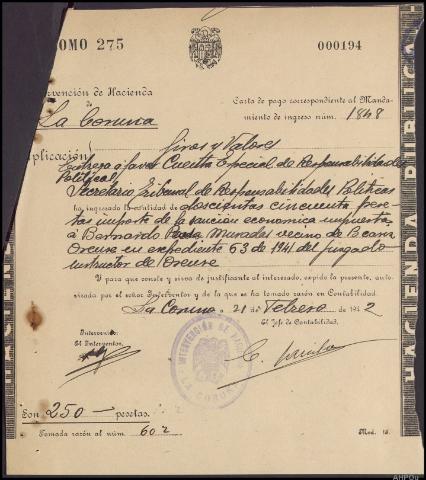 TOMO 275
000194
rvención de Hacienda
de
La Coruna
Carta de pago correspondiente al Manda-
miento de ingreso núm. 1848
plicación
Giros y Valores
Entrega a favor Cuenta Especial de Responsabilidades
Politicas
Secretario Tribunal de Responsabilidades Politicas
ha ingresado la cantidad de doscientas cincuenta pese
tas importe de la sancion economica impuesta
á Bernardo Murades vecino de
Orense en expediente 63 de 1941 del juzgado
instructor de Orense
Y para que conste y sirva de justificante al interesado, expido la presente, auto-
rizada por el señor Interventor y de la que se ha tomado razón en Contabilidad.
La Coruna a 21 de Febrero de 1942
Intervenido:
El Interventor,
El Jefe de Contabilidad,
INTERVENCION DE HACIENDA
LA CORUÑA
Son 250 pesetas.
Tomada razón al núm. 602
Mod. 18.
HACIENDA PUBLICA
HACIENDA
AHPOu